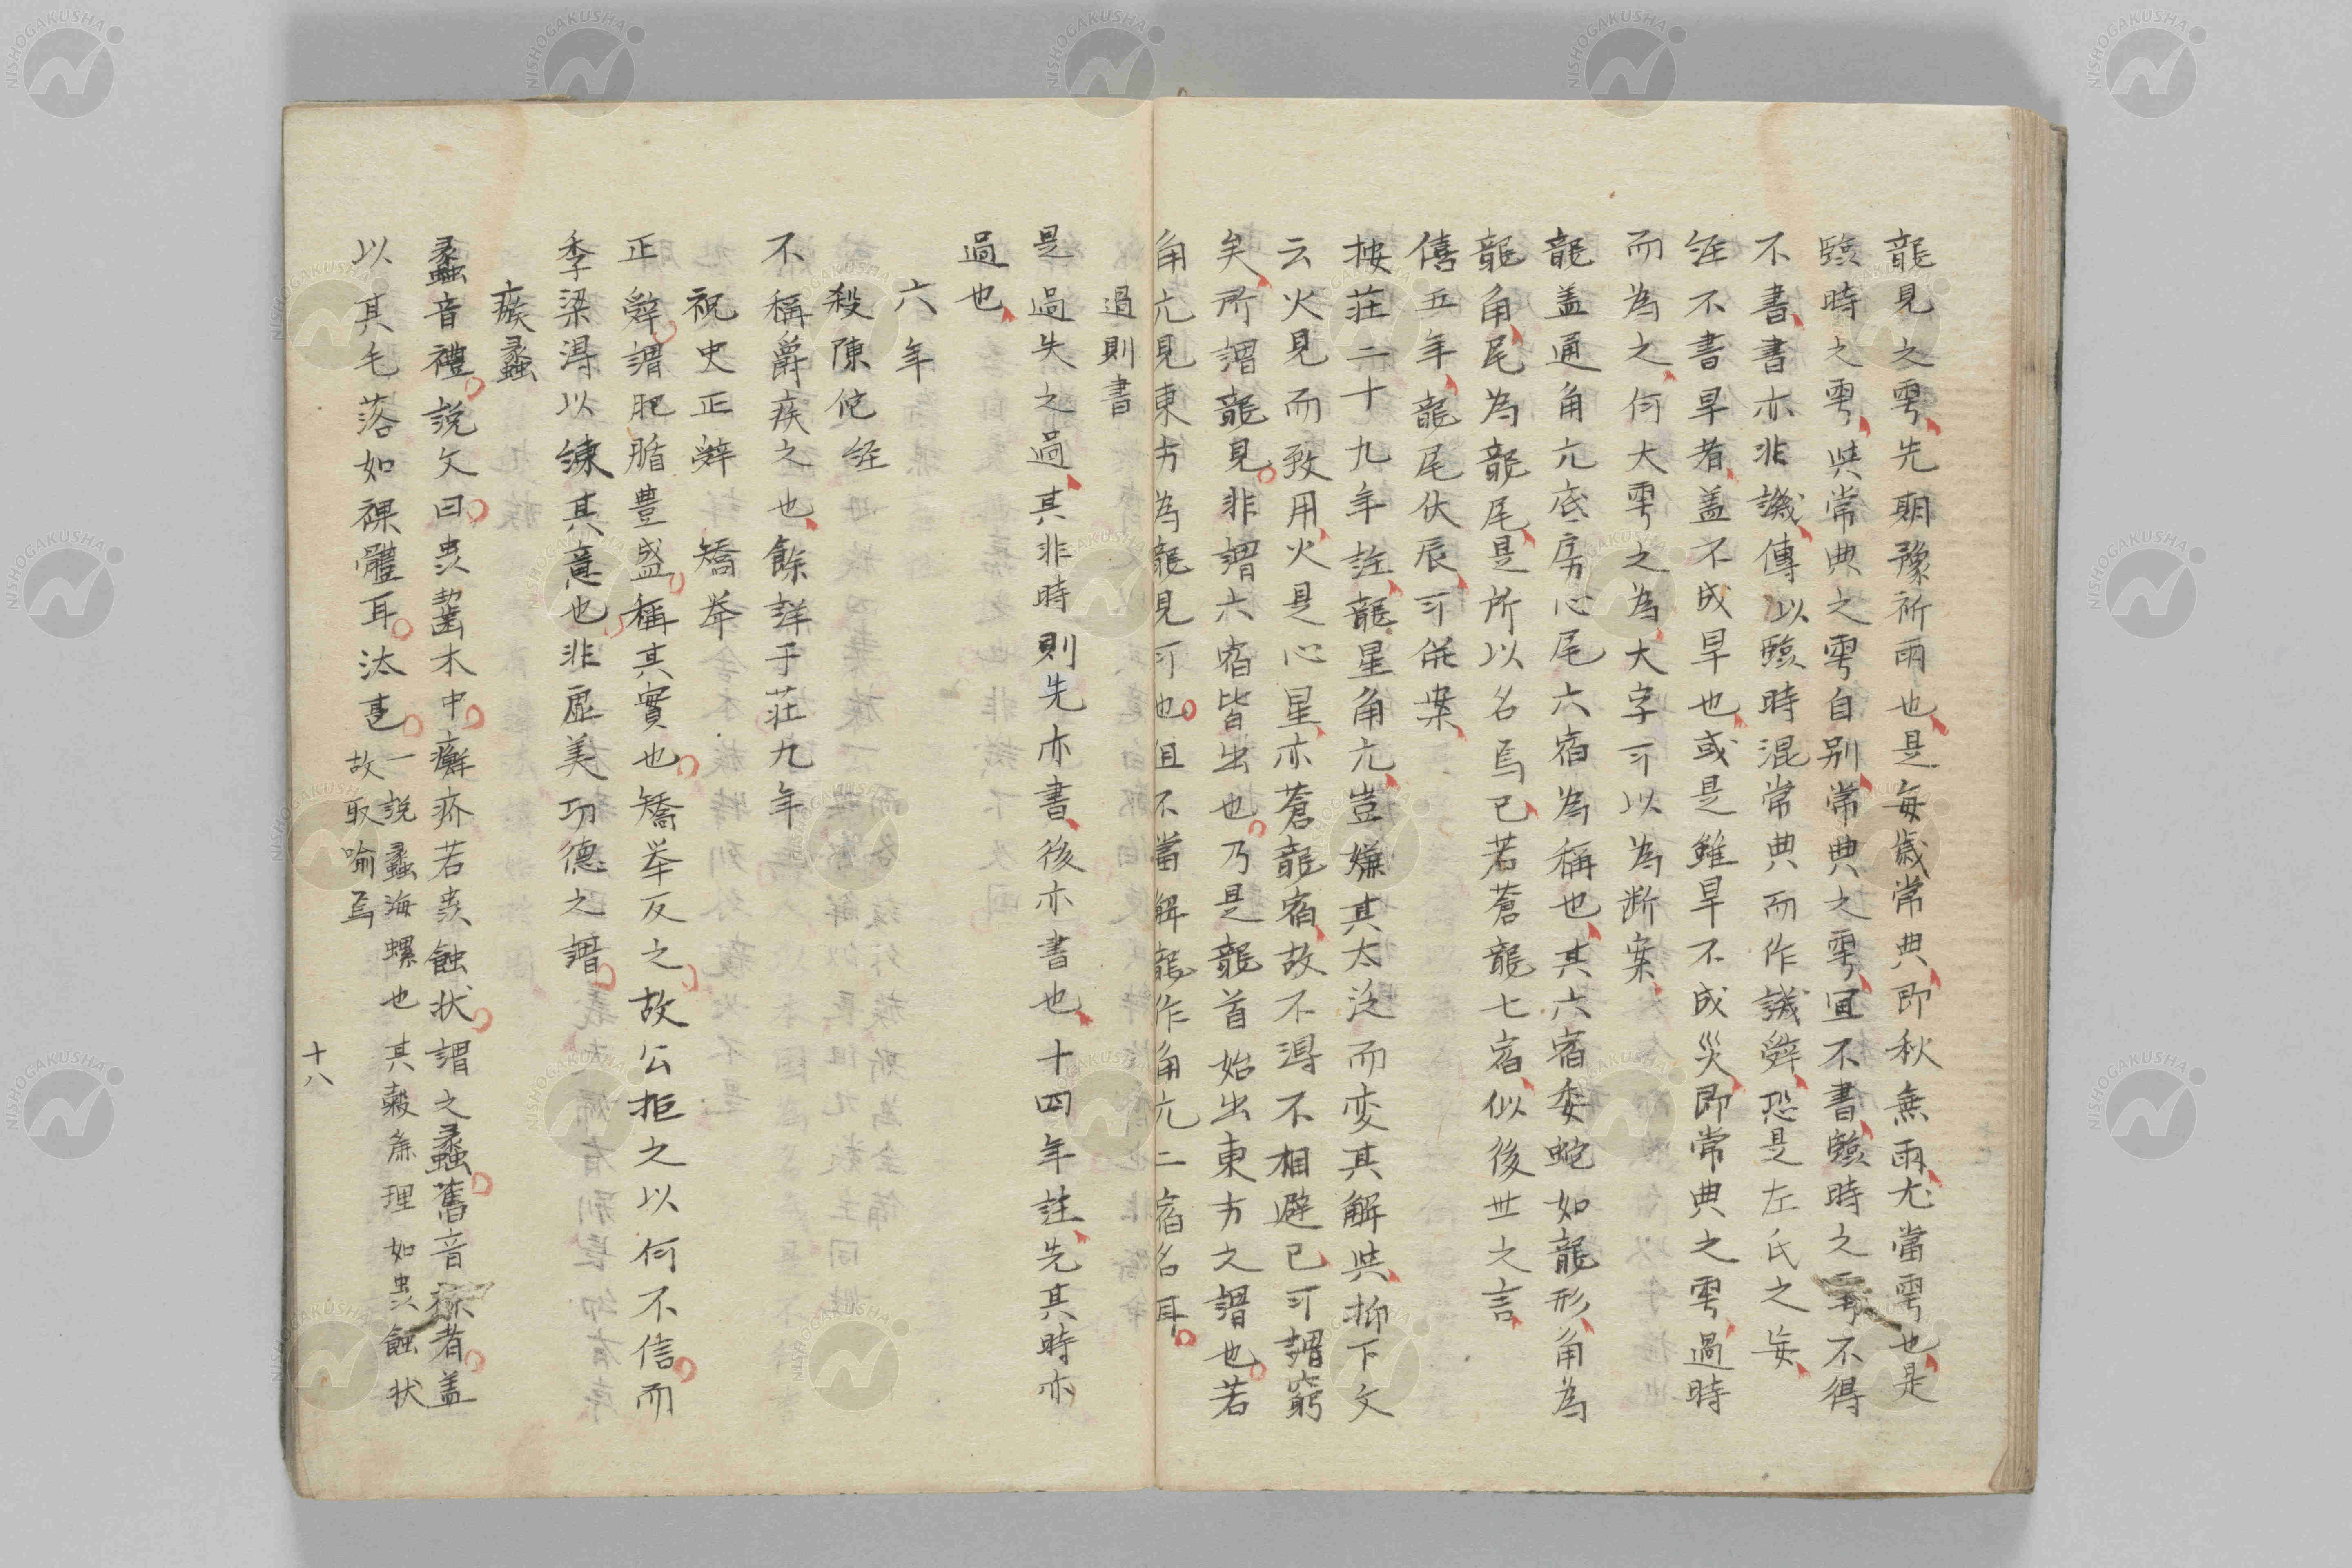 龍見之雩先期豫祈雨也是每歳常典即秋無雨尤當雩也是
臨時之雩與常典之雩自别常典之雩宜不書臨時之雩不得
不書書亦非譏傳以臨時混常典而作譏辤恐是左氏之妄
経不書旱者盖不成旱也或是雖旱不成災即常典之雩過時
而為之何大雩之為大字可以為断案
龍盖通角亢底房心尾六宿為稱也其六宿委蛇如龍形角為
龍角尾為龍尾是所以名焉已若蒼龍七宿似後世之言
僖五年龍尾伏辰可併案
按莊二十九年註龍星角亢豈嫌其太泛而変其解與抑下文
云火見而致用火是心星亦蒼龍宿故不得不相避已可謂窮
矣所謂龍見非謂六宿皆出也乃是龍首始出東方之謂也若
角亢見東方為龍見可也但不當解龍作角亢二宿名耳
過則書
是過失之過其非時則先亦書後亦書也十四年註先其時亦
過也
六年
殺陳佗 経
不稱爵疾之也餘詳于莊九年
祝史正辤 矯举
正辤謂肥腯豊盛稱其實也矯举反之故公拒之以何不信而
季梁得以練其意也非虚美功德之謂
瘯蠡
蠡音禮説文曰虫齧木中癬疥若虫蝕状謂之蠡舊音裸者盖
以其毛落如裸體耳汰甚 一説蠡海螺也其殻条理如虫蝕状
故取喻焉
十八
NISHOGAKUSHA